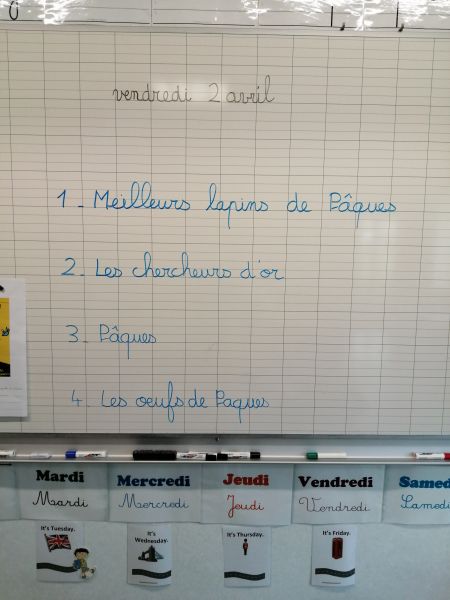 vendredi 2 avril
1_ Meilleurs lapins de Pâques
2_ Les chercheurs d'or
3_ Pâques
4_ Les oeufs de Paques
Mardi Mercredi Jeudi Vendredi Samedi
Mardi Mercredi Jeudi Vendredi Samedi
It's Tuesday. It's Wednesday. It's Thursday. It's Friday.